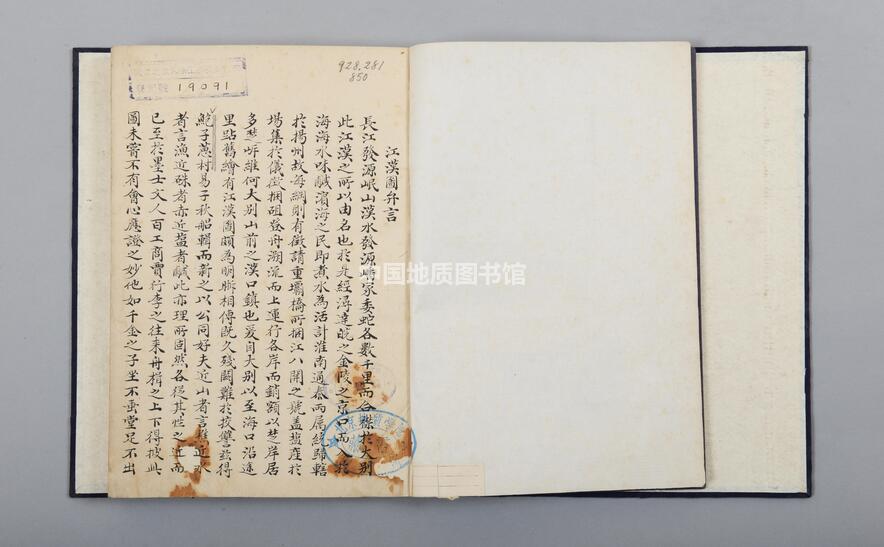 江漢圖弁言
長江發源岷山漢水發源嶓家委蛇各數千里而合襟於大別
此江漢之所以由名也於是經潯達皖之金陵之京口而入於
海海水味鹹濱海之民即煮水為活計淮南通泰兩屬統歸轄
於揚州故每綱則有徵請重壩橋所捆江八開之號蓋鹽產於
場集於儀徵捆䃀發舟溯流而上運行各岸而銷額以楚岸居
多楚岸維何大別山前之漢口鎮也爰自大別以至海口沿途
里點舊繪有江漢圖頗為明晰相傳既久殘闕難於校讐茲得
鮑子蕙村易子秋船輯而新之以公同好夫近山者言樵近水
者言漁近硃者赤近鹽者鹹此亦理所固然各從其性之近而
已至於墨士文人百工商賈行李之往來舟楫之上下得披此
圖未嘗不有會心應證之妙他如千金之子坐不垂堂足不出
928.281
850
19091
中国地质图书馆